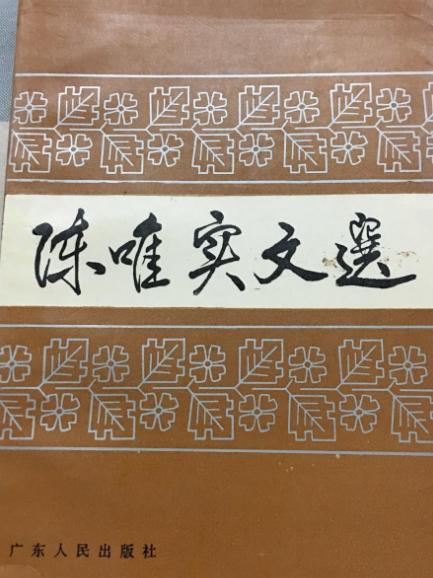 陈唯实文選
广东人民出版社